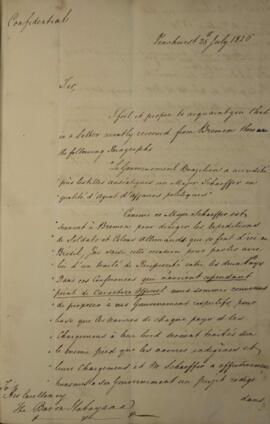 Confidential
Penshurst 25 July 1826
Sir,
I feel it proper to acquaint you that
in a Letter recently received from Bremen there are
the following Paragraphs
"Le Gouvernement Brazilien a accrédité
près les Villes anséatiques un Major Schaeffer en
qualité d'agent d'affaires politiques"
Comme ce Major Schaeffer est
à Bremen pour diriger les Expéditions
de Soldats et Colons Allemands qui se font d'ici au
Bresil, j'ai saisi cette occasion pour parler avec
lui d'un traité de Réciprocité entre les deux Pays
Dans ces Conférences qui n'avoient cependant
point de Caractère Officiel nous sommes convenus
de proposer à nos Gouvernemens respectifs pour
base que les navires de chaque pays et les
Chargemens à leur bord seroient traités sur
le même pied que les navires indigènes et
leurs Chargemens et Mr Schaeffer a effectivement
transmis à son Gouvernement un Projet rédigé
dans
To
His Excellency
The Baron Itabayana